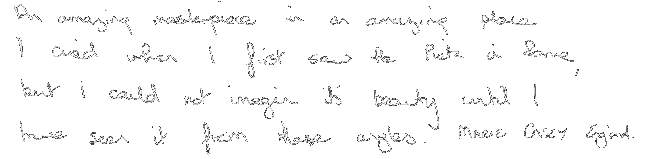 An amazing masterpiece in an amazing place
I cried when I first saw the Pieta in Rome,
but I could not imagine its beauty until I
have seen it from these angles. Marie Casey England.